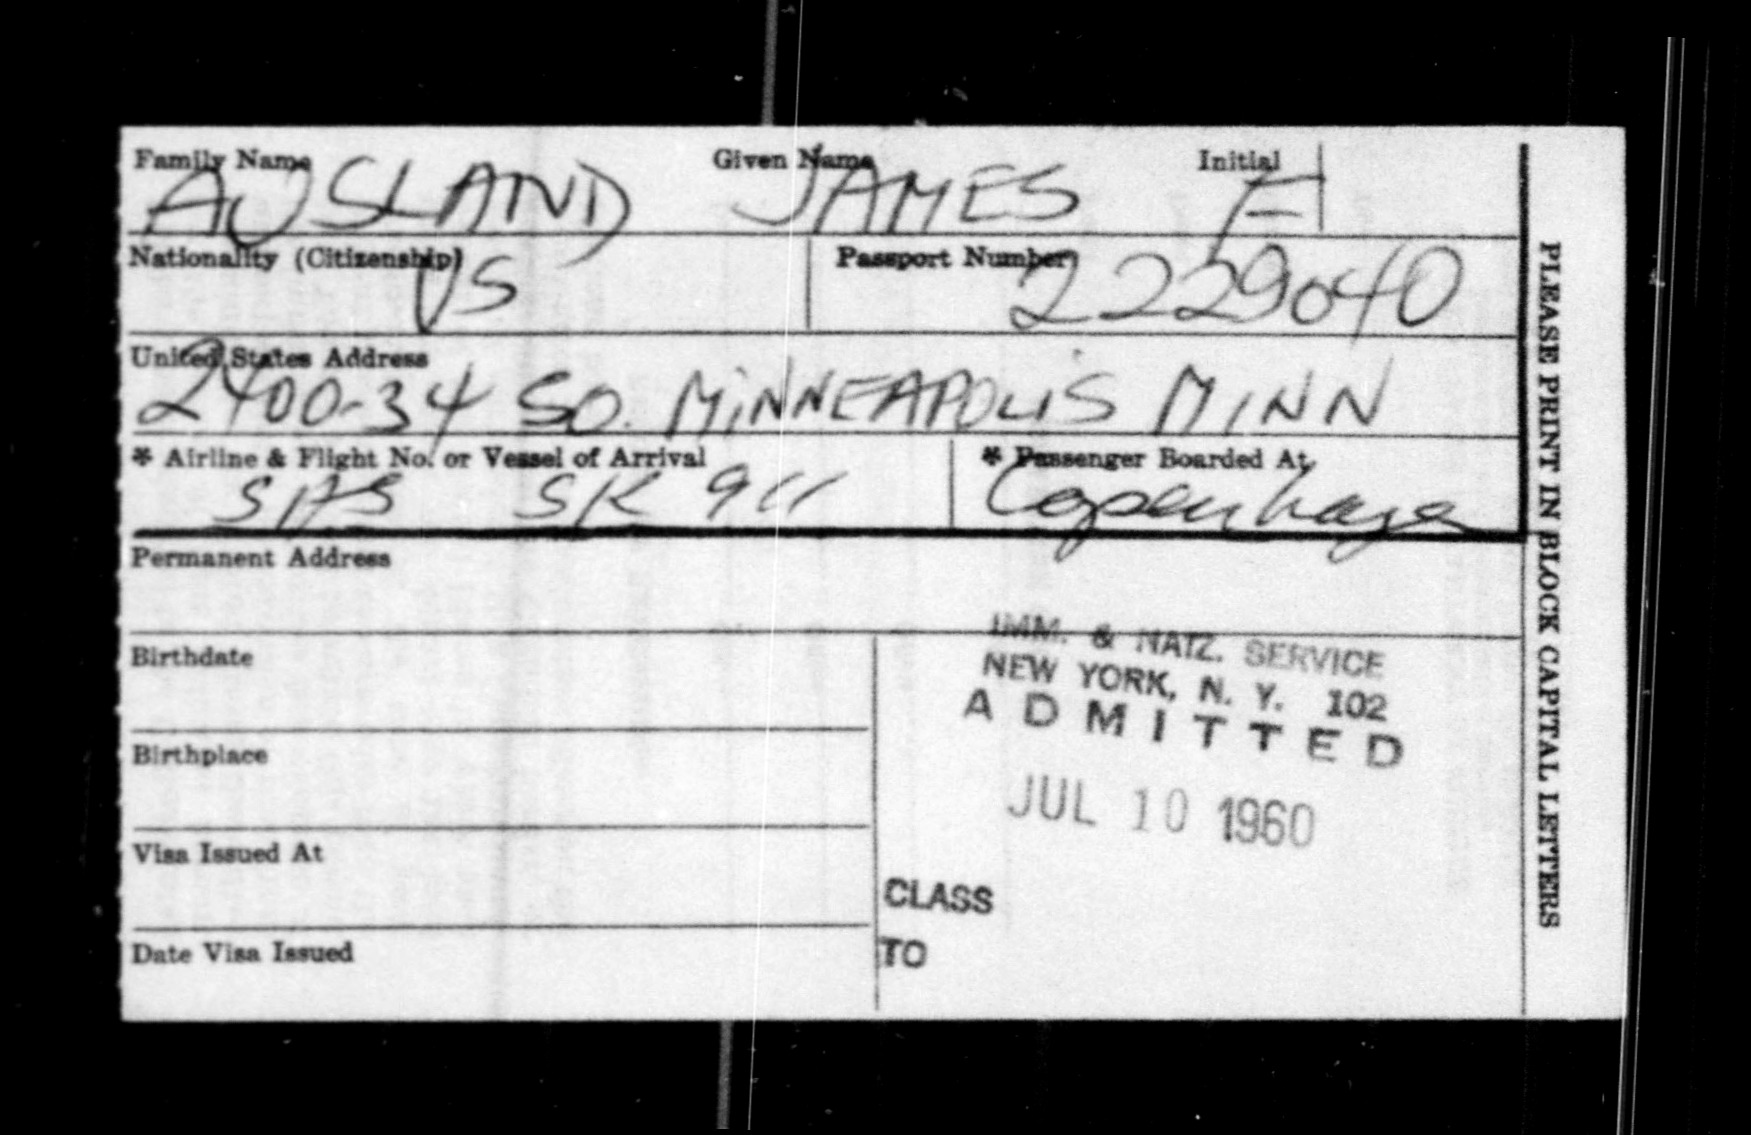 Family Name Given Name Initial
AUSLAND JAMES E
Nationality (Citizenship) Passport Number
US 2229040
United States Address
2400-34 SO. MINNEAPOLIS MINN
* Airline & Flight No. or Vessel of Arrival * Passenger Boarded At
SAS SK 911 Copenhagen
Permanent Address
IMM. & NATZ. SERVICE
Birthdate
NEW YORK, N. Y. 102
ADMITTED
Birthplace
JUL 10 1960
Visa Issued At
CLASS
Date Visa Issued
TO
PLEASE PRINT IN BLOCK CAPITAL LETTERS